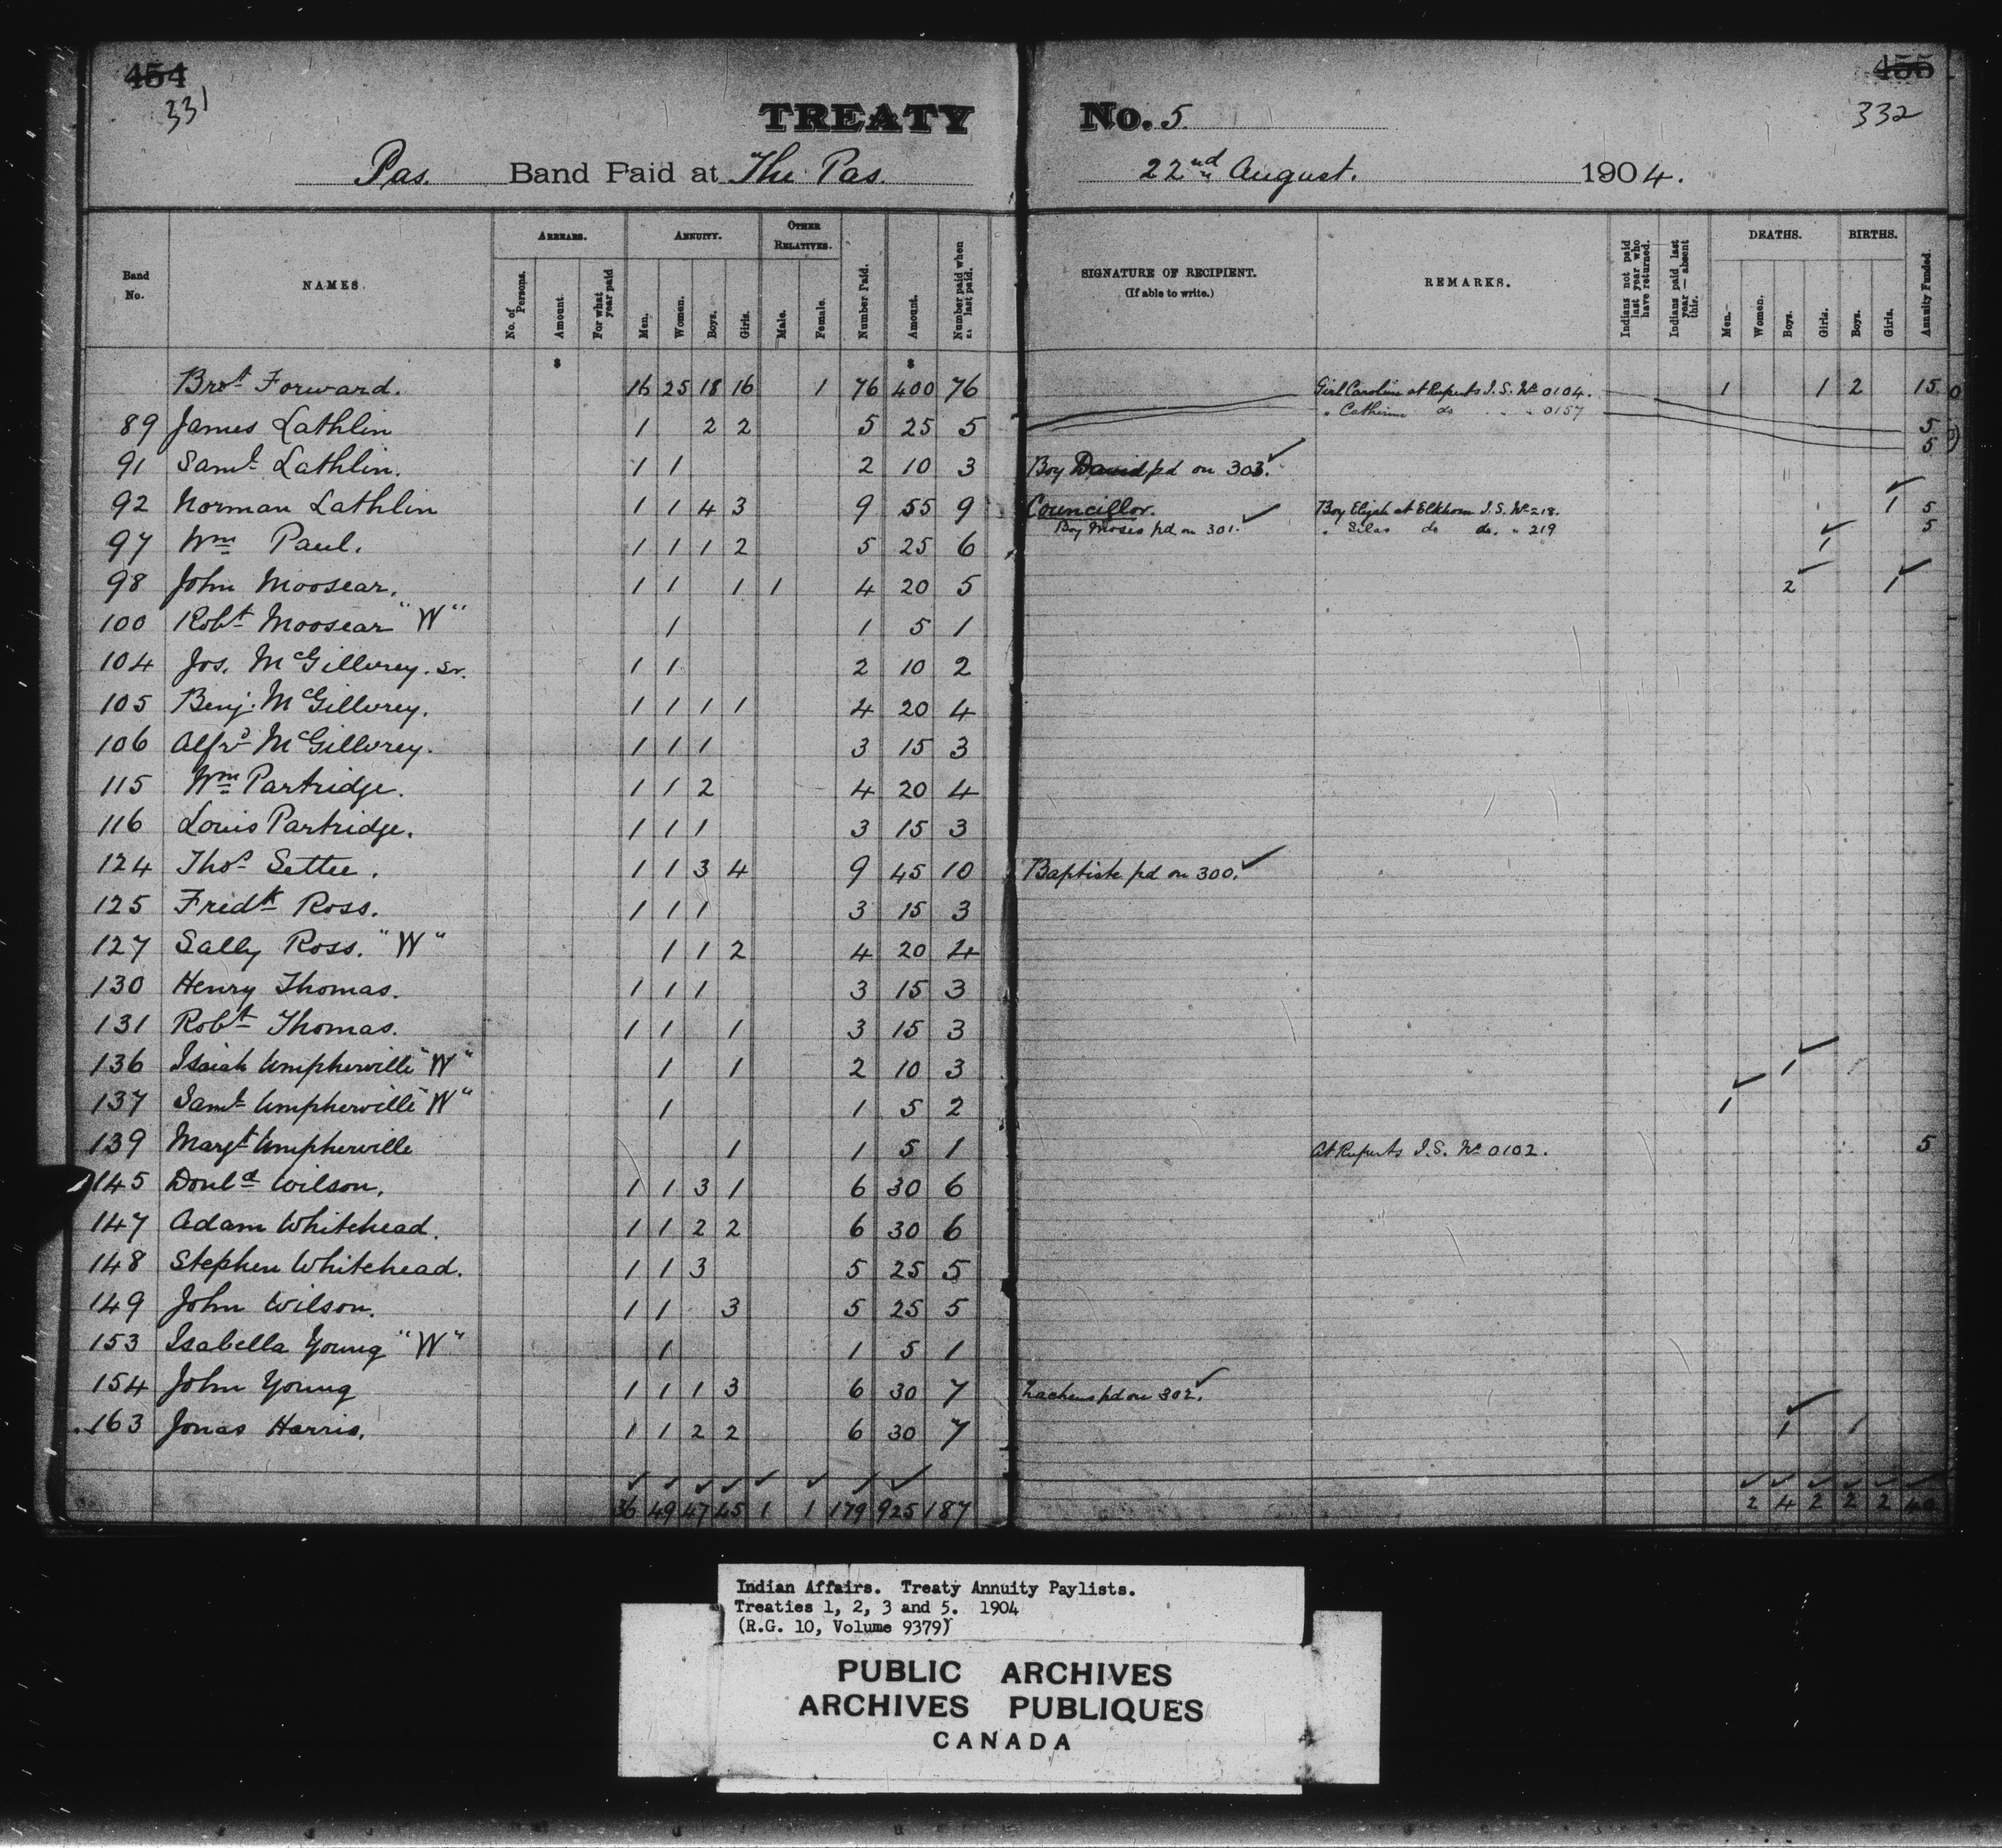 454 455
331 332
TREATY No. 5.
Pas. Band Paid at The Pas. 22nd August. 1904.
Band No. NAMES. ARREARS. ANNUITY. OTHER RELATIVES. Number Paid. Amount. Number paid when last paid. SIGNATURE OF RECIPIENT. (If able to write.) REMARKS. Indians not paid last year who have returned. Indians paid last year — absent this. DEATHS. BIRTHS. Annuity Funded.
No. of Persons. Amount. For what year paid Men. Women. Boys. Girls. Male. Female. Men. Women. Boys. Girls. Boys. Girls.
$ $
Brot Forward. 16 25 18 16 1 76 400 76 Girl Caroline at Ruperts I.S. No 0104. 1 1 2 15
" Catherine do " " 0157
89 James Lathlin 1 2 2 5 25 5 5
5
91 Saml Lathlin. 1 1 2 10 3 Boy David pd on 303.
92 Norman Lathlin 1 1 4 3 9 55 9 Councillor. Boy Elijah at Elkhorn I.S. No 218. 1 5
Boy Moses pd on 301. " Silas do do. " 219 5
97 Wm Paul. 1 1 1 2 5 25 6 1
98 John Moosear. 1 1 1 1 4 20 5 2 1
100 Robt Moosear "W" 1 1 5 1
104 Jos. McGillvrey. Sr. 1 1 2 10 2
105 Benj. McGillvrey. 1 1 1 1 4 20 4
106 Alfrd McGillvrey. 1 1 1 3 15 3
115 Wm Partridge. 1 1 2 4 20 4
116 Louis Partridge. 1 1 1 3 15 3
124 Thos Settee. 1 1 3 4 9 45 10 Baptiste pd on 300.
125 Fredk Ross. 1 1 1 3 15 3
127 Sally Ross. "W" 1 1 2 4 20 4
130 Henry Thomas. 1 1 1 3 15 3
131 Robt Thomas. 1 1 1 3 15 3
136 Isaiah Umpherville "W" 1 1 2 10 3 1
137 Saml Umpherville "W" 1 1 5 2 1
139 Margt Umpherville 1 1 5 1 At Ruperts I.S. No 0102. 5
145 Donld Wilson. 1 1 3 1 6 30 6
147 Adam Whitehead. 1 1 2 2 6 30 6
148 Stephen Whitehead. 1 1 3 5 25 5
149 John Wilson. 1 1 3 5 25 5
153 Isabella Young "W" 1 1 5 1
154 John Young 1 1 1 3 6 30 7 Zacheus pd on 302.
163 Jonas Harris. 1 1 2 2 6 30 7 1 1
36 49 47 45 1 1 179 925 187 2 4 2 2 2 40
Indian Affairs. Treaty Annuity Paylists.
Treaties 1, 2, 3 and 5. 1904
(R.G. 10, Volume 9379)
PUBLIC ARCHIVES
ARCHIVES PUBLIQUES
CANADA